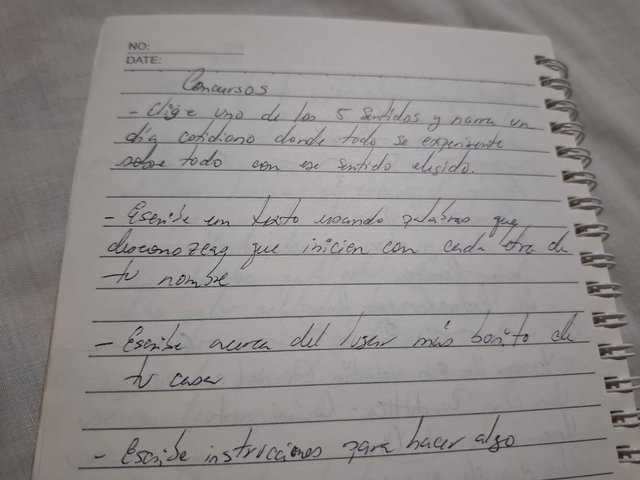 NO:
DATE:
Concursos
- Elige uno de los 5 sentidos y narra un
día cotidiano donde todo se experimente
sobre todo con ese sentido elegido.
- Escribe un texto usando palabras que
desconozcas que inicien con cada letra de
tu nombre
- Escribe acerca del lugar más bonito de
tu casa
- Escribe instrucciones para hacer algo